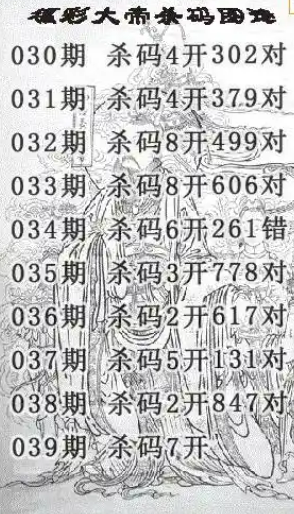 彩大帝杀码图
030期 杀码4开302对
031期 杀码4开379对
032期 杀码8开499对
033期 杀码8开606对
034期 杀码6开261错
035期 杀码3开778对
036期 杀码2开617对
037期 杀码5开131对
038期 杀码2开847对
039期 杀码7开